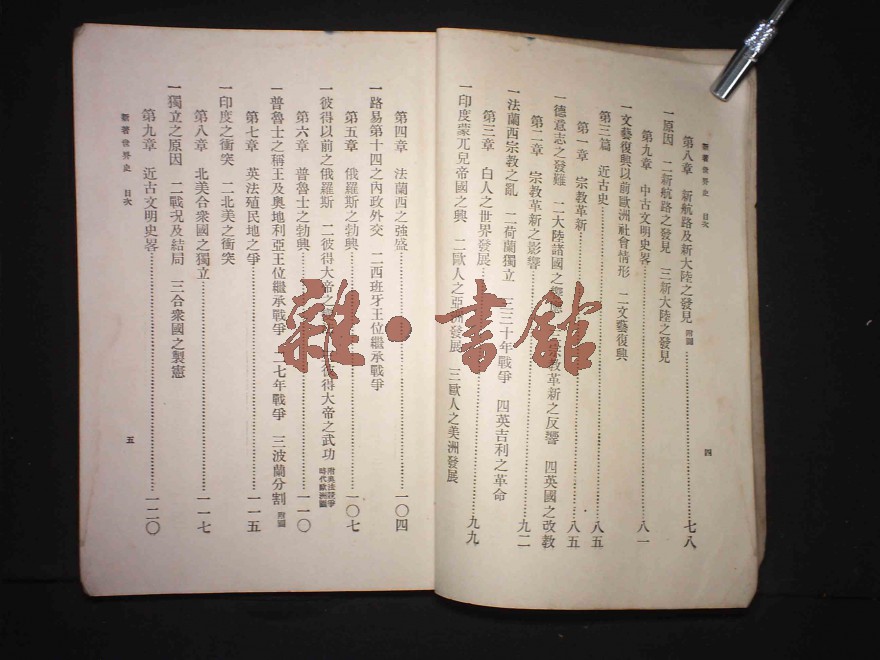 新著世界史 目次
第八章 新航路及新大陸之發見 附圖……七八
一原因 二新航路之發見 三新大陸之發見
第九章 中古文明史畧……八一
一文藝復興以前歐洲社會情形 二文藝復興
第三篇 近古史……八五
第一章 宗教革新……八五
一德意志之發難 二大陸諸國之響應 宗教革新之反響 四英國之改教
第二章 宗教革新之影響……九二
一法蘭西宗教之亂 二荷蘭獨立 三三十年戰爭 四英吉利之革命
第三章 白人之世界發展……九九
一印度蒙兀兒帝國之興 二歐人之亞洲發展 三歐人之美洲發展
四
第四章 法蘭西之強盛……一〇四
一路易第十四之內政外交 二西班牙王位繼承戰爭
第五章 俄羅斯之勃興……一〇七
一彼得以前之俄羅斯 二彼得大帝之 彼得大帝之武功 附英法競爭時代歐洲圖
第六章 普魯士之勃興……一一〇
一普魯士之稱王及奧地利亞王位繼承戰爭 二七年戰爭 三波蘭分割 附圖
第七章 英法殖民地之爭……一一五
一印度之衝突 二北美之衝突
第八章 北美合衆國之獨立……一一七
一獨立之原因 二戰况及結局 三合衆國之製憲
第九章 近古文明史畧……一二〇
新著世界史 目次
五
雜·書館